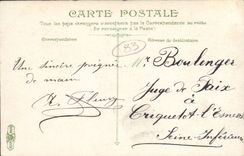 CARTE POSTALE
Tous les pays étrangers n'acceptent pas la Correspondance au recto
(Se renseigner à la Poste)
Correspondance
Adresse du destinataire
83
Une sincère poignée
de main
Mr Boulenger
Juge de Paix
à
Criquetot l'Esneval
Seine Inférieure